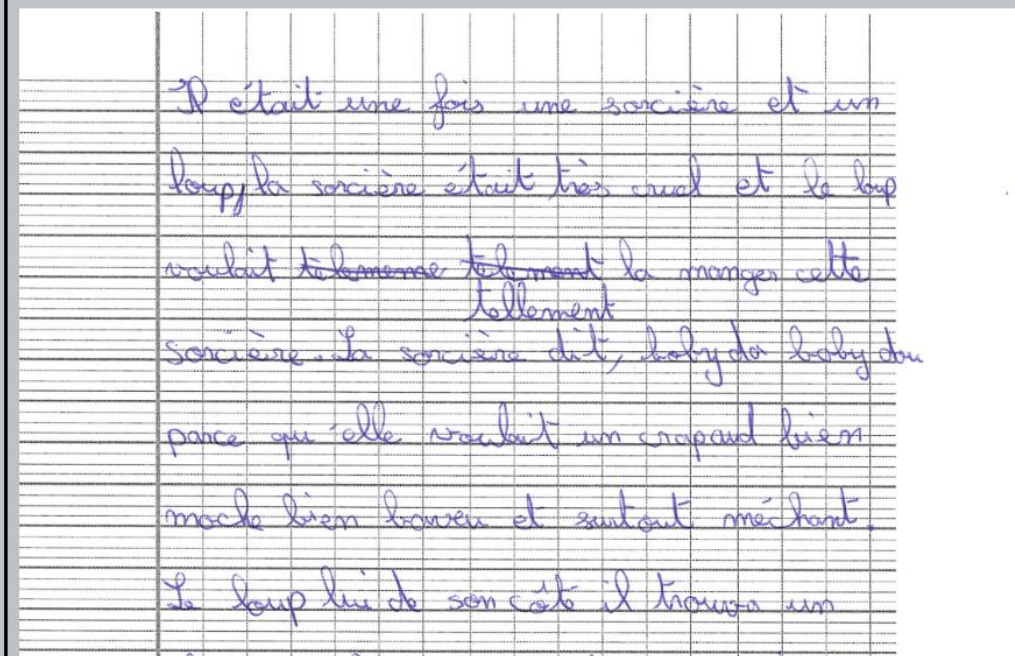 Il était une fois une sorcière et un
loup, la sorcière était très cruel et le loup
voulait telememe telement la manger cette
tellement
sorcière. La sorcière dit, boby da boby dou
parce qu'elle voulait un crapaud bien
moche bien baveu et surtout méchant.
Le loup lui de son côté il trouva un